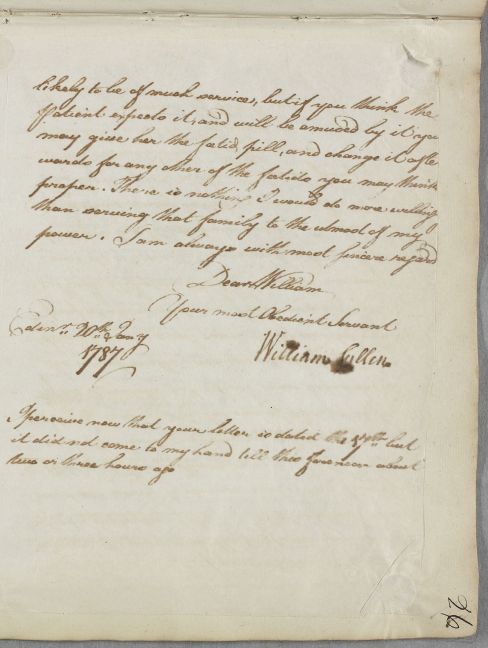 likely to be of much service, but if you think the
Patient expects it, and will be amused by it you
may give her the fœtid, pill, and change it after
wards for any other of the fœtids you may think
proper. There is nothing I would do more willing
than serving that family to the utmost of my
power. I am always with most sincere regard
Dear William
Your most Obedient Servant
Edinr. 20th Jany
1787
William Cullen
I perceive now that your letter is dated the 17th but
it did not come to my hand till this forenoon about
two or three hours ago
26